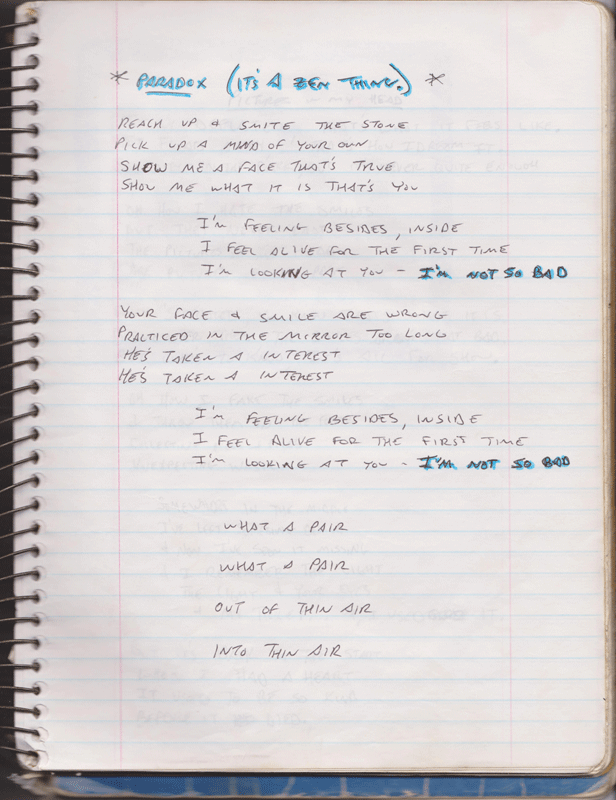 * PARADOX (IT'S A ZEN THING.) *
REACH UP & SMITE THE STONE
PICK UP A MIND OF YOUR OWN
SHOW ME A FACE THAT'S TRUE
SHOW ME WHAT IT IS THAT'S YOU
I'M FEELING BESIDES, INSIDE
I FEEL ALIVE FOR THE FIRST TIME
I'M LOOKING AT YOU - I'M NOT SO BAD
YOUR FACE & SMILE ARE WRONG
PRACTICED IN THE MIRROR TOO LONG
HE'S TAKEN A INTEREST
HE'S TAKEN A INTEREST
I'M FEELING BESIDES, INSIDE
I FEEL ALIVE FOR THE FIRST TIME
I'M LOOKING AT YOU - I'M NOT SO BAD
WHAT A PAIR
WHAT A PAIR
OUT OF THIN AIR
INTO THIN AIR